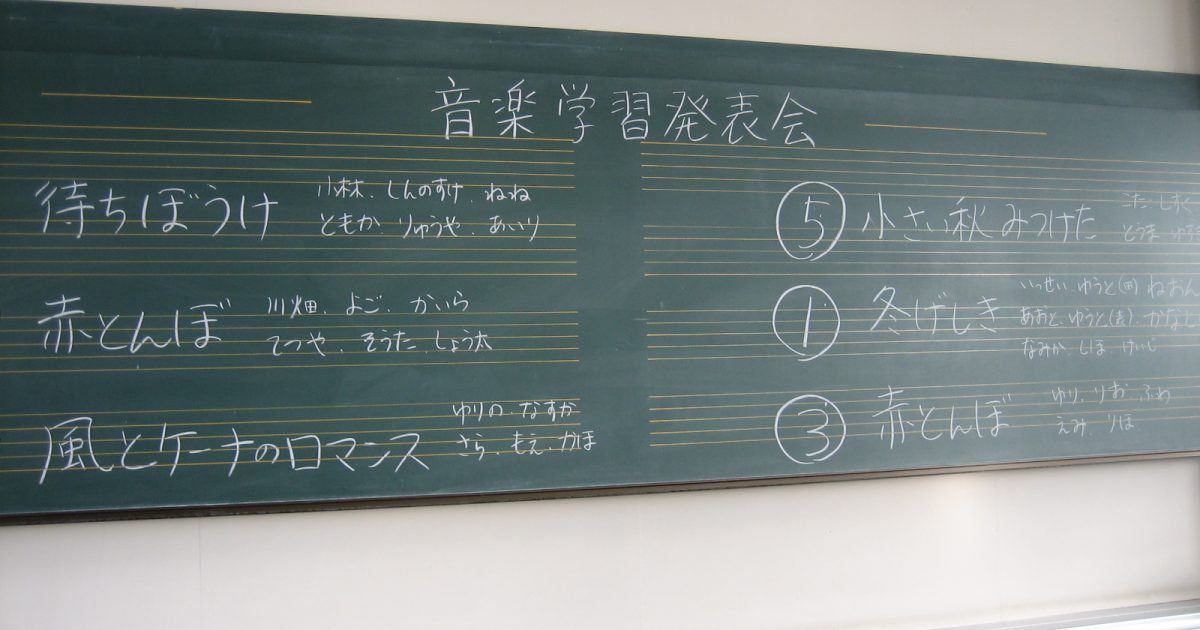 音楽学習発表会
待ちぼうけ
小林、しんのすけ、ねね
ともか、りゅうや、あいり
赤とんぼ
川畑、よご、かいら
てつや、そうた、しょう太
風とケーナのロマンス
ゆりの、なすか
さら、もえ、かほ
⑤ 小さい秋みつけた
こた
とうま
① 冬げしき
いっせい ゆうと(田) ねおん
あおと、ゆうと(表)、かなと
なみか、しほ、けいじ
③ 赤とんぼ
ゆり、りお、ふわ
えみ、りほ